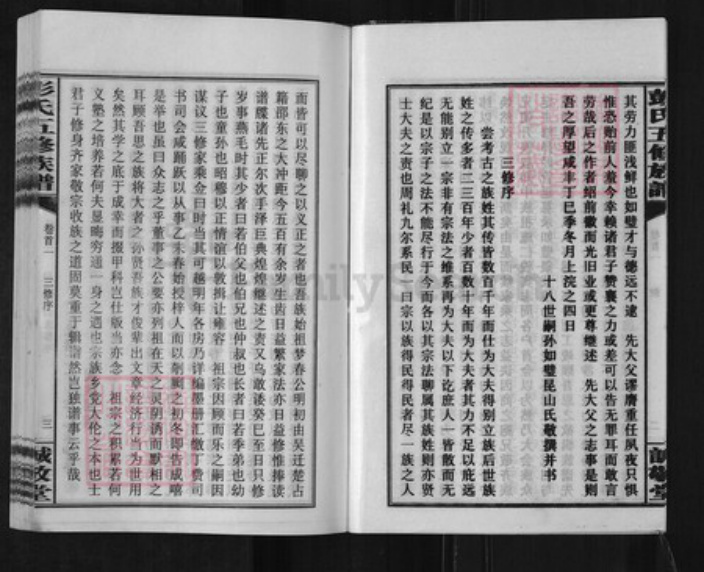 彭氏五修族譜
其劳力匪浅鲜也如璧才与德远不逮　先大父谬膺重任夙夜只惧
惟恐贻前人羞今幸赖诸君子赞襄之力或差可以告无罪耳而敢言
劳哉后之作者绍前徽而光旧业或更尊继述　先大父之志事是则
吾之厚望咸丰丁巳季冬月上浣之四日
十八世嗣孙如璧昆山氏敬撰并书
三修序
尝考古之族姓其传皆数百千年而仕为大夫得别立族后世族
姓之传多者二三百年少者百数十年而为大夫者其力不足以庇远
无能别立一宗非有宗法之维系再为大夫以下讫庶人一皆散而无
纪是以宗子之法不能尽行于今而各以其宗法聊属其族姓则亦贤
士大夫之责也周礼九尔系民一曰宗以族得民得民者尽一族之人
誠敬堂
而皆可以尽聊之以义正之者也吾族始祖梦春公明初由吴迁楚占
籍邵东之大冲距今五百有余岁生齿日益繁家法亦日益修惟捧读
谱牒诸先正尔次手泽巨典煌煌继述之责又乌敢诿癸巳至日只修
岁事燕毛时其少者曰若伯父也伯兄也仲叔也长者曰若季弟也幼
子也童孙也昭穆以正情谊以敦揖让雍容　祖宗因顾而乐之嗣因
谋议三修家乘佥曰时当其可越明年各房乃详编墨册汇缴丁费司
书司会咸踊跃以从事乙未春始授梓人而以剞劂之初冬即告成嘻
是举也虽曰众志之乎董事之公要亦列祖在天之灵阴诱而默相之
耳顾吾思之族将大者之孙贤吾族才俊辈出文章经济行当为世用
矣然其学之底于成幸而掇甲科岂仕版当亦念　祖宗之积累若何
义塾之培养若何夫显晦穷通一身之遇也宗族乡党大伦之本也士
君子修身齐家敬宗收族之道固莫重于辑谱然岂独谱事云乎哉
彭氏五修族譜
卷首一
三修序
三
誠敬堂